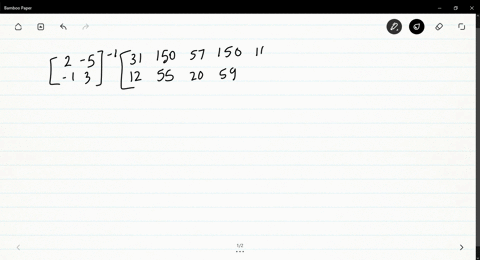 Bamboo Paper
[ 2 -5 ]⁻¹ [ 31 150 57 150 11
[ -1 3 ] [ 12 55 20 59
1/2